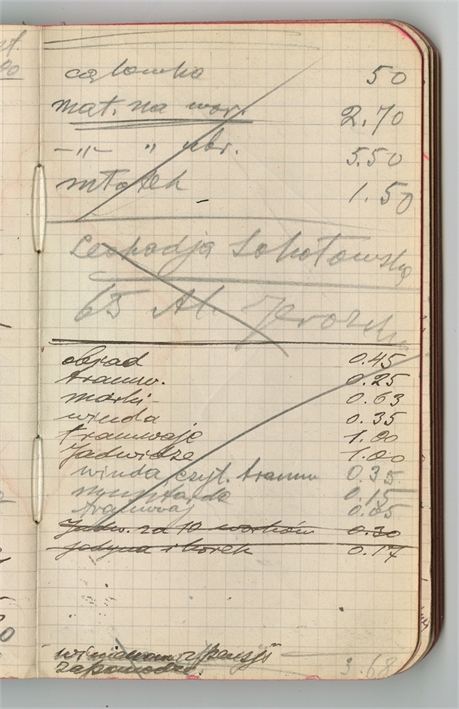 50
mat. na wor. 2.70
-"- " ubr. 5.50
młotek 1.50
Leokadja Sokołowska
65 Al. Jerozol.
objad 0.45
tramw. 0.25
marki 0.63
winda 0.35
tramwaje 1.00
Jadwidze 1.00
winda, czyt. tramw 0.35
0.15
tramwaj 0.05
Jadw. za 10 worków 0.30
jodyna i korek 0.17
3.68